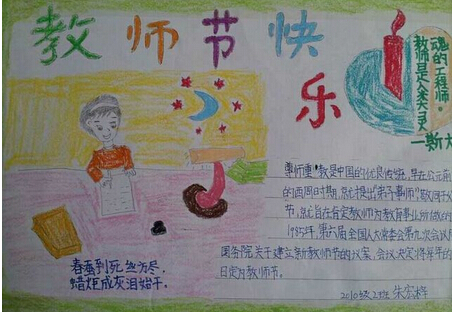 教师节快
乐
魂的工程师。
教师是人类灵
—斯大
春蚕到死丝方尽,
蜡炬成灰泪始干。
尊师重教是中国的优良传统,早在公元前
的西周时期,就提出
节,旨在肯定教师为教育事业所做的
1985年,第六届全国人大常委会第九次会议
国务院关于建立教师节的议案,会议决定将每年的
日定为教师节。
2010级2班 朱宏桦